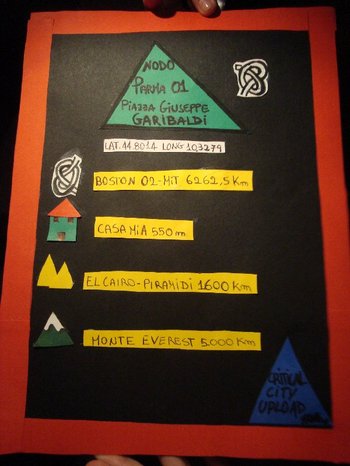 NODO
PARMA 01
PIAZZA GIUSEPPE
GARIBALDI
LAT. 44.8014 LONG 10.3279
BOSTON 02-MIT 6262,5 Km
CASA MIA 550 m
EL CAIRO-PIRAMIDI 1600 Km
MONTE EVEREST 5.000 Km
CRITICAL
CITY
UPLOAD